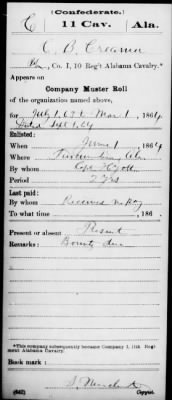 (Confederate.)
C 11 Cav. Ala.
C. B. Creamer
Pvt, Co. I, 10 Reg't Alabama Cavalry.*
Appears on
Company Muster Roll
of the organization named above,
for July 1, 63 to Mar 1, 1864
Dated Sept 1, 64
Enlisted:
When June 1, 1864
Where Tuscumbia, Ala.
By whom Capt
Period 2 Yrs
Last paid:
By whom Received no Pay
To what time , 186 .
Present or absent Present
Remarks: Bounty due
*This company subsequently became Company I, 11th Regiment Alabama Cavalry.
Book mark:
(642) Copyist.